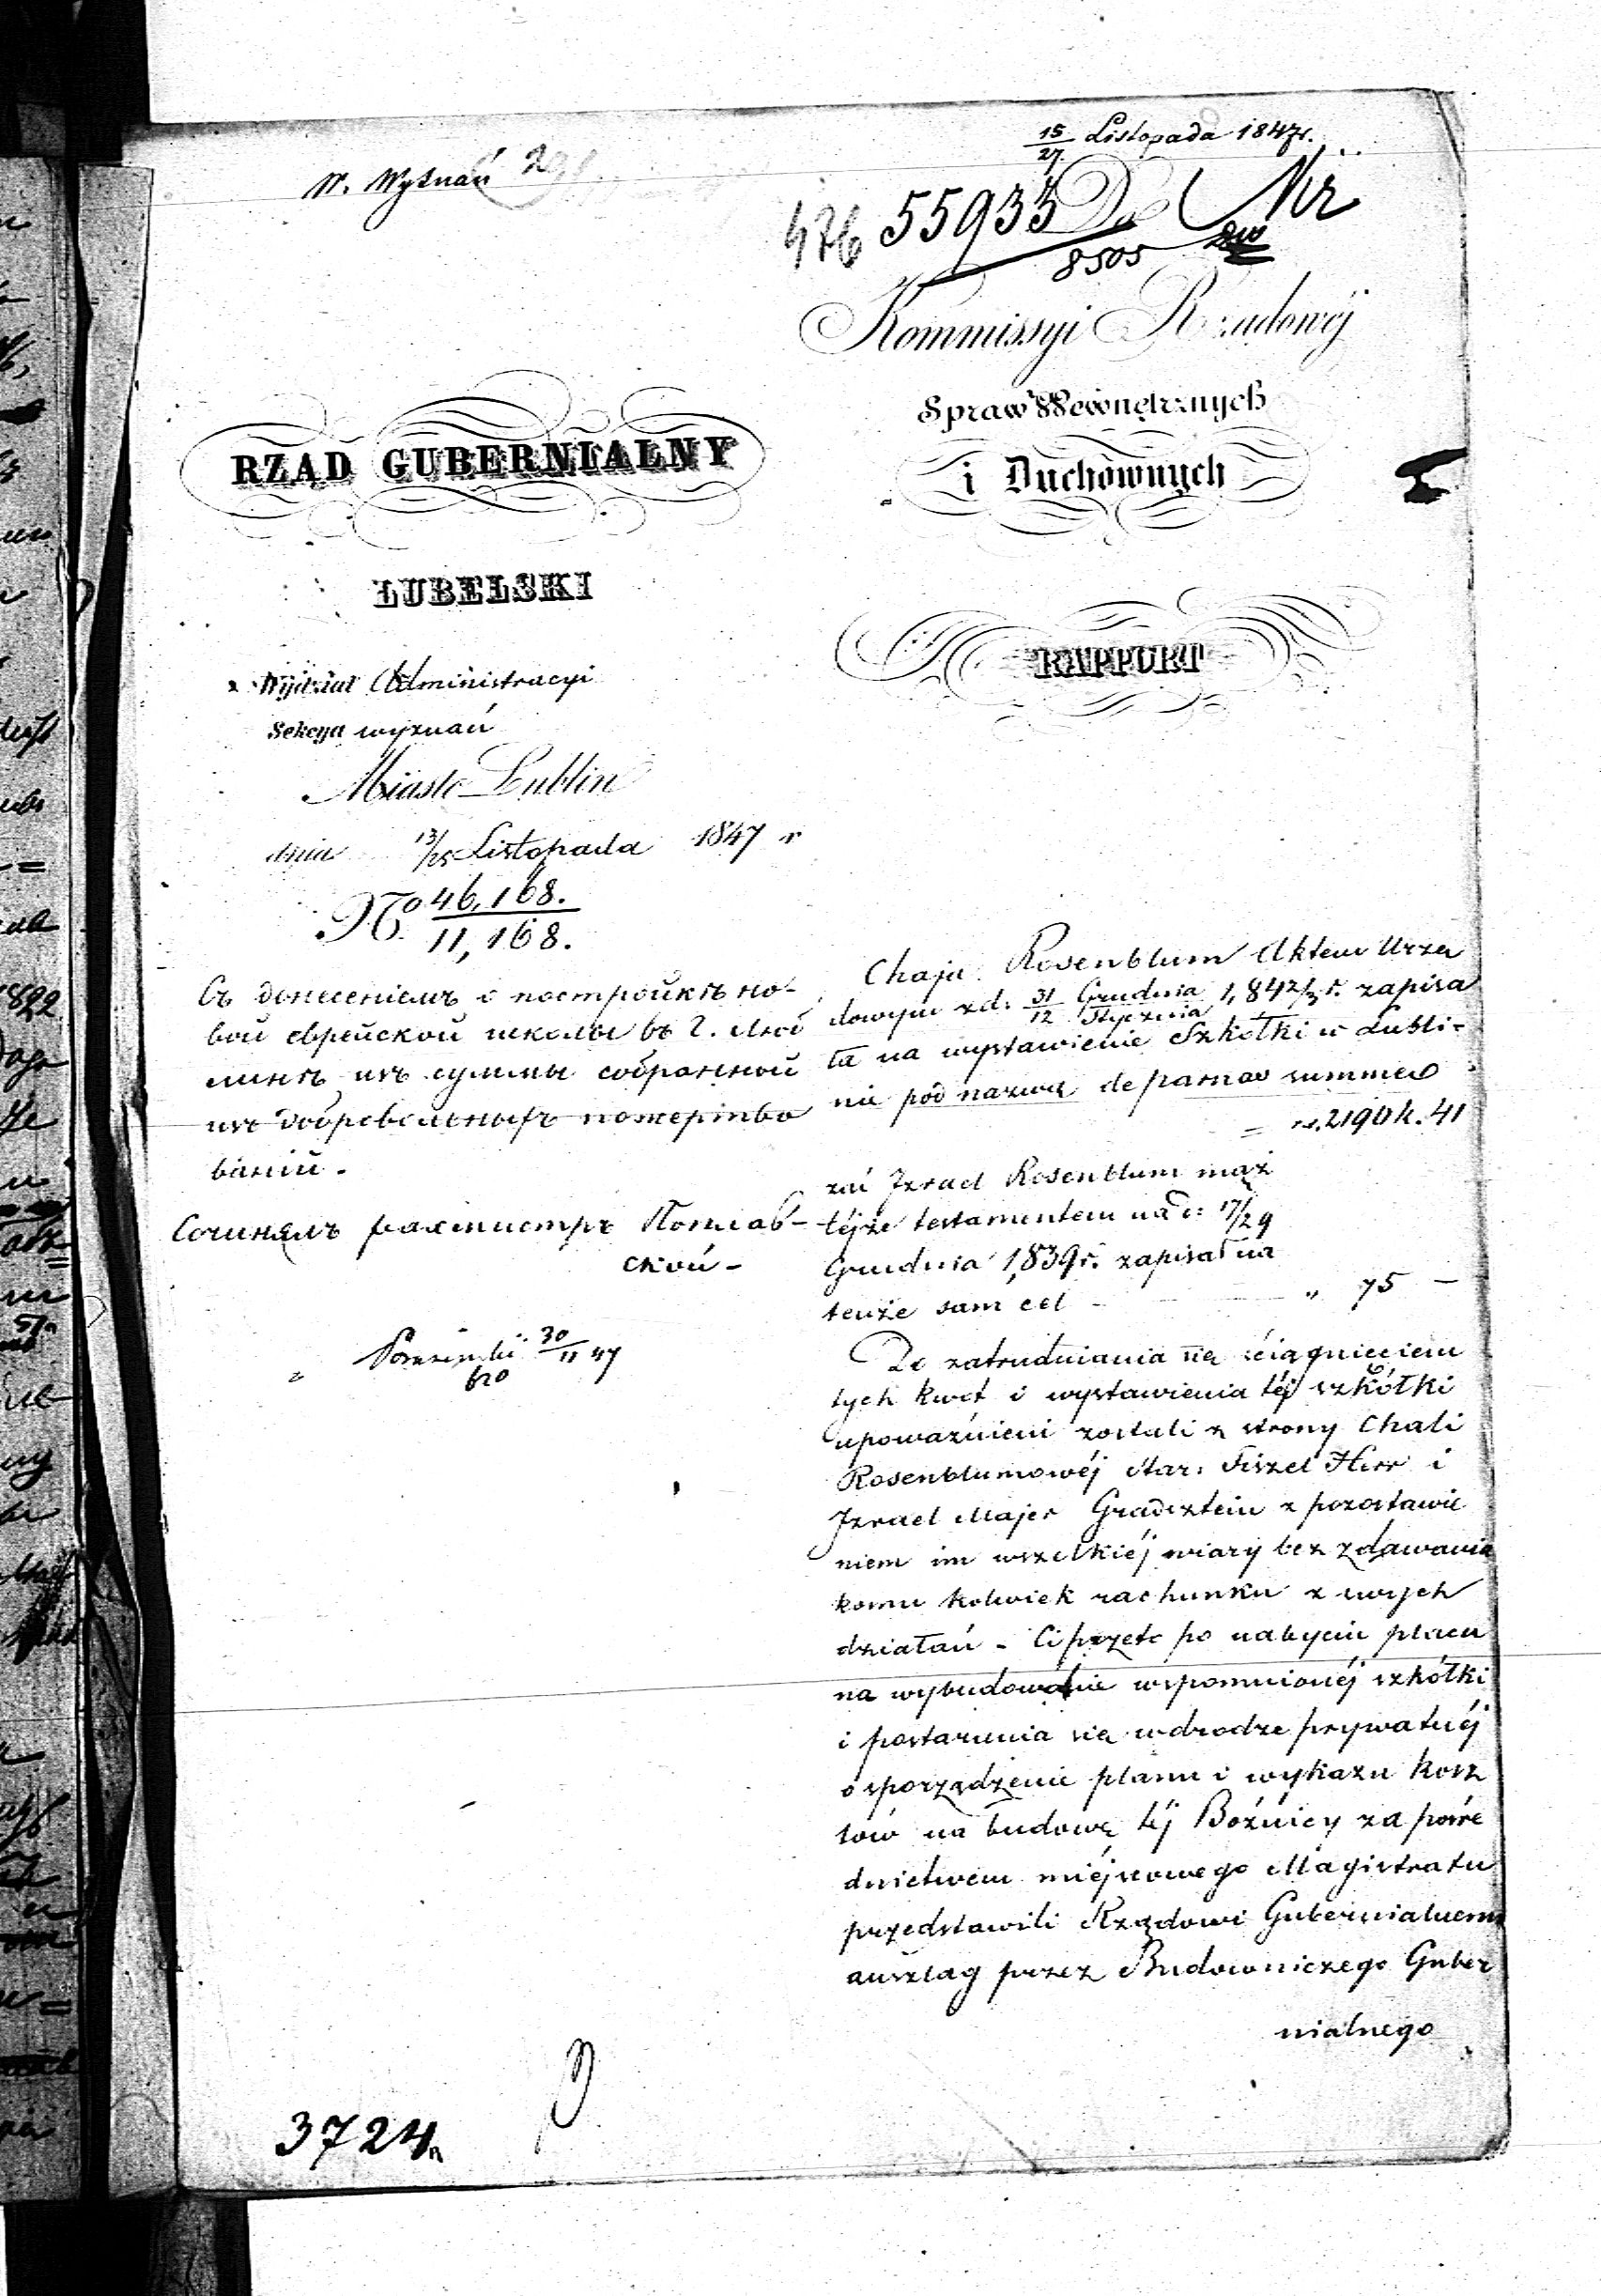 15/27 Listopada 1847 r.
W. Wyznań
476 55933 Do Nr
8505
Kommissyi Rządowéj
Spraw Wewnętrznych
i Duchównych
RZĄD GUBERNIALNY
LUBELSKI
RAPPORT
Wydział Administracyi
Sekcya wyznań
Miasto Lublin
dnia 13/25 Listopada 1847 r
No 46,168.
11,168.
Съ донесеніемъ о постройкѣ но-
вой еврейской школы въ Г. Люб
линѣ изъ суммы собранной
изъ добровольныхъ пожертво
ваній.
Сочинялъ
ской-
30/11 47
Chaja Rosenblum Aktem Urzę
dowym z d: 31 Grudnia/12 Stycznia 1,842/3 r. zapisa
ła na wystawienie Szkółki w Lubli-
nie pód nazwą de parnas summę
= rs. 2190 k. 41
zaś Izrael Rosenblum mąż
téjże testamentem na d: 17/29
Grudnia 1,839 r. zapisał na
tenże sam cel - „ 75 —
Do zatrudniania się ściągnięciem
tych kwot i wystawienia téj szkółki
upoważnieni zostali z strony Chaji
Rosenblumowéj Mar: Fiszel Herr i
Izrael Majer Gradsztein z pozostawie
niem im wszelkiéj wiary bez zdawania
komu kolwiek rachunku z swych
działań - Ci przeto po nabyciu placu
na wybudowanie wspomnionéj szkółki
i postarania się w drodze prywatnéj
o sporządzenie planu i wykazu kosz
tów na budowę téj Bóżnicy za pośre
dnictwem miéjscowego Magistratu
przedstawili Rządowi Gubernialnemu
anszlag przez Budowniczego Guber
nialnego
3724